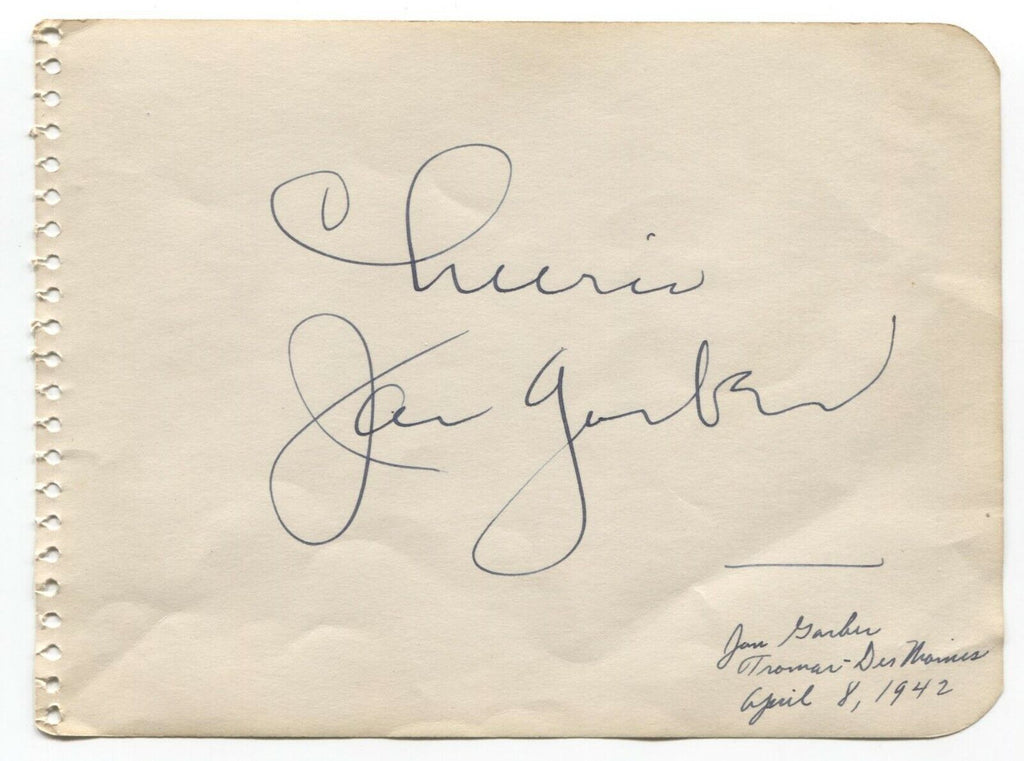 Cheerio
Jan Garber
Jan Garber
Tromar-Des Moines
April 8, 1942